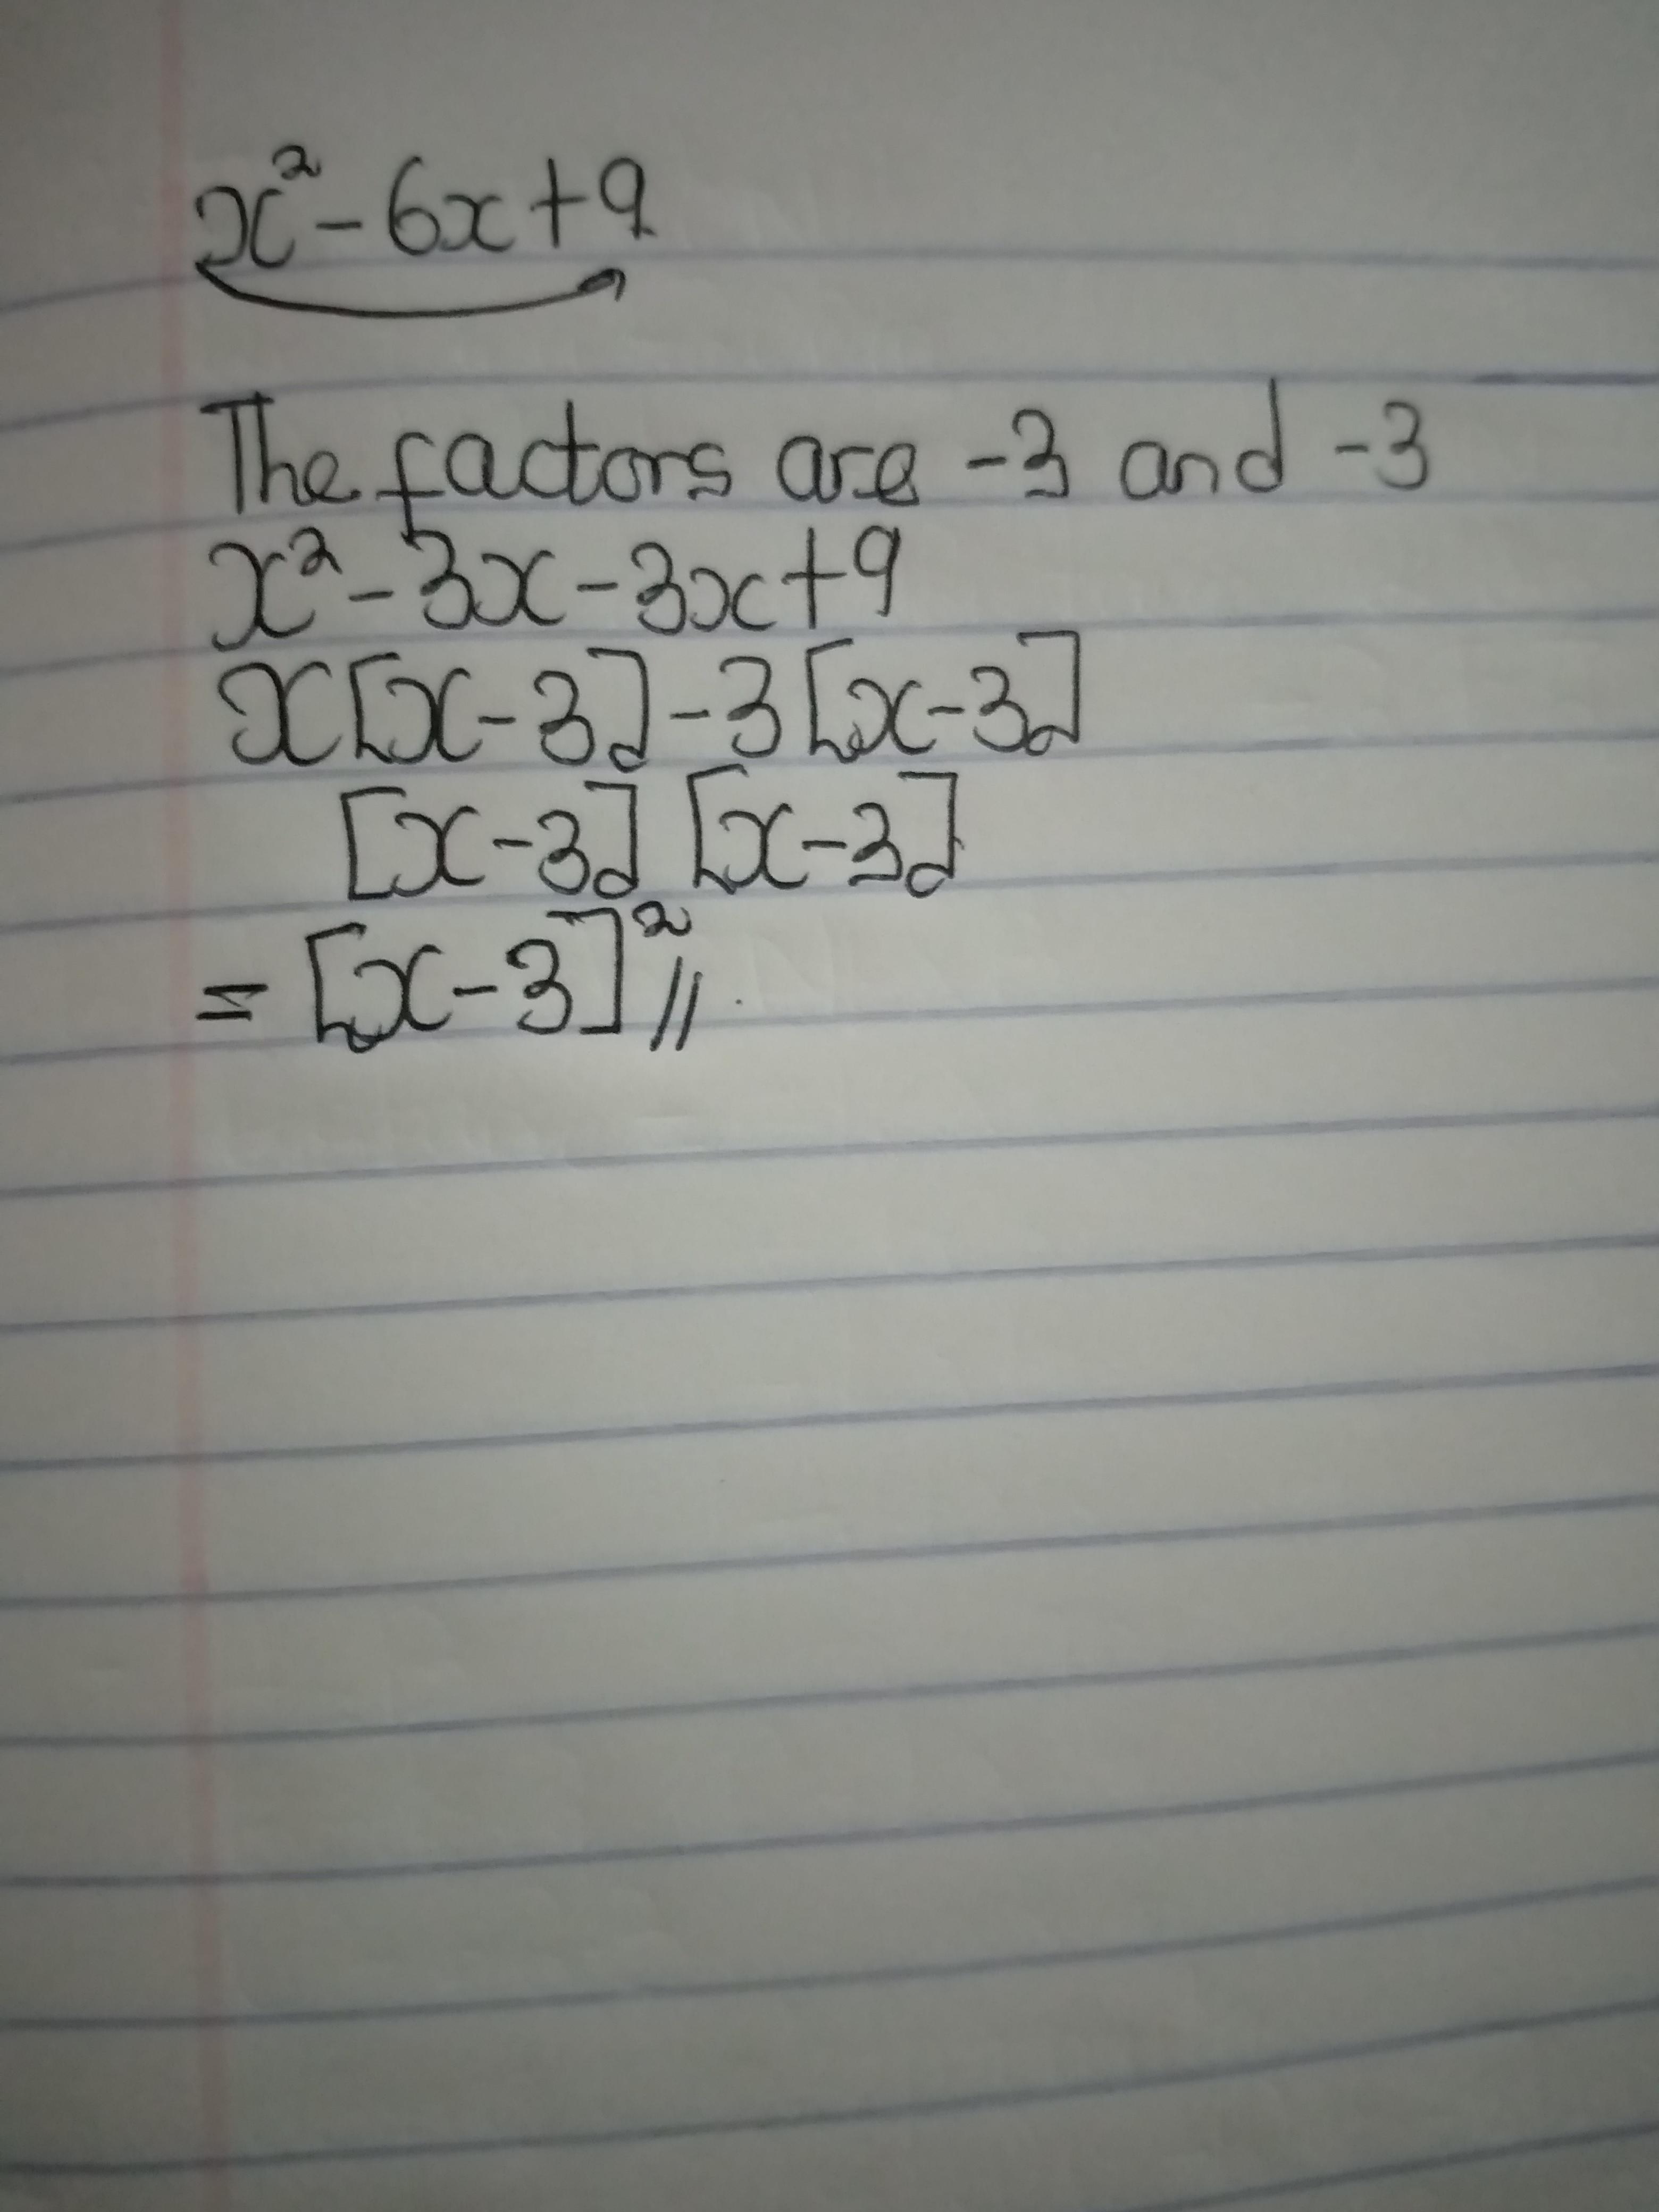 x² - 6x + 9
The factors are -3 and -3
x² - 3x - 3x + 9
x[x-3] - 3[x-3]
[x-3] [x-3]
= [x-3]² //